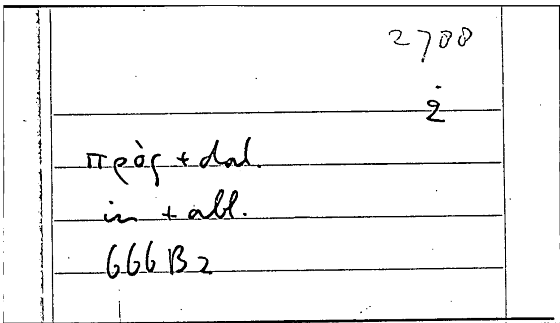 2700
2
πρὸς + dat.
in + abl.
666 B 2